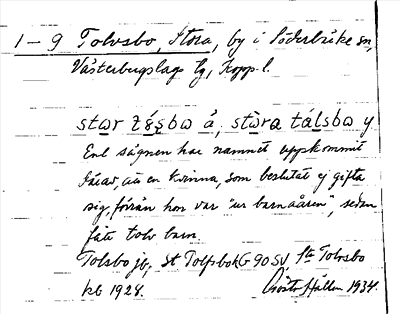 1-9 Tolvsbo, Stora, by i Söderbärke sn,
Västerbergslags tg, Kopp. l.
stɷr tɷ́sbɷ å, stɷ̀ra tálsbɷ y
Enl sägnen har namnet uppkommit
därav, att en kvinna, som beslutat ej gifta
sig, förrän hon var "ur barnaåren", sedan
fått tolv barn.
Tolsbo jb, St Tolfsbo kG 90 SV, Sta Tolvsbo
kb 1924. Hallen 1934.